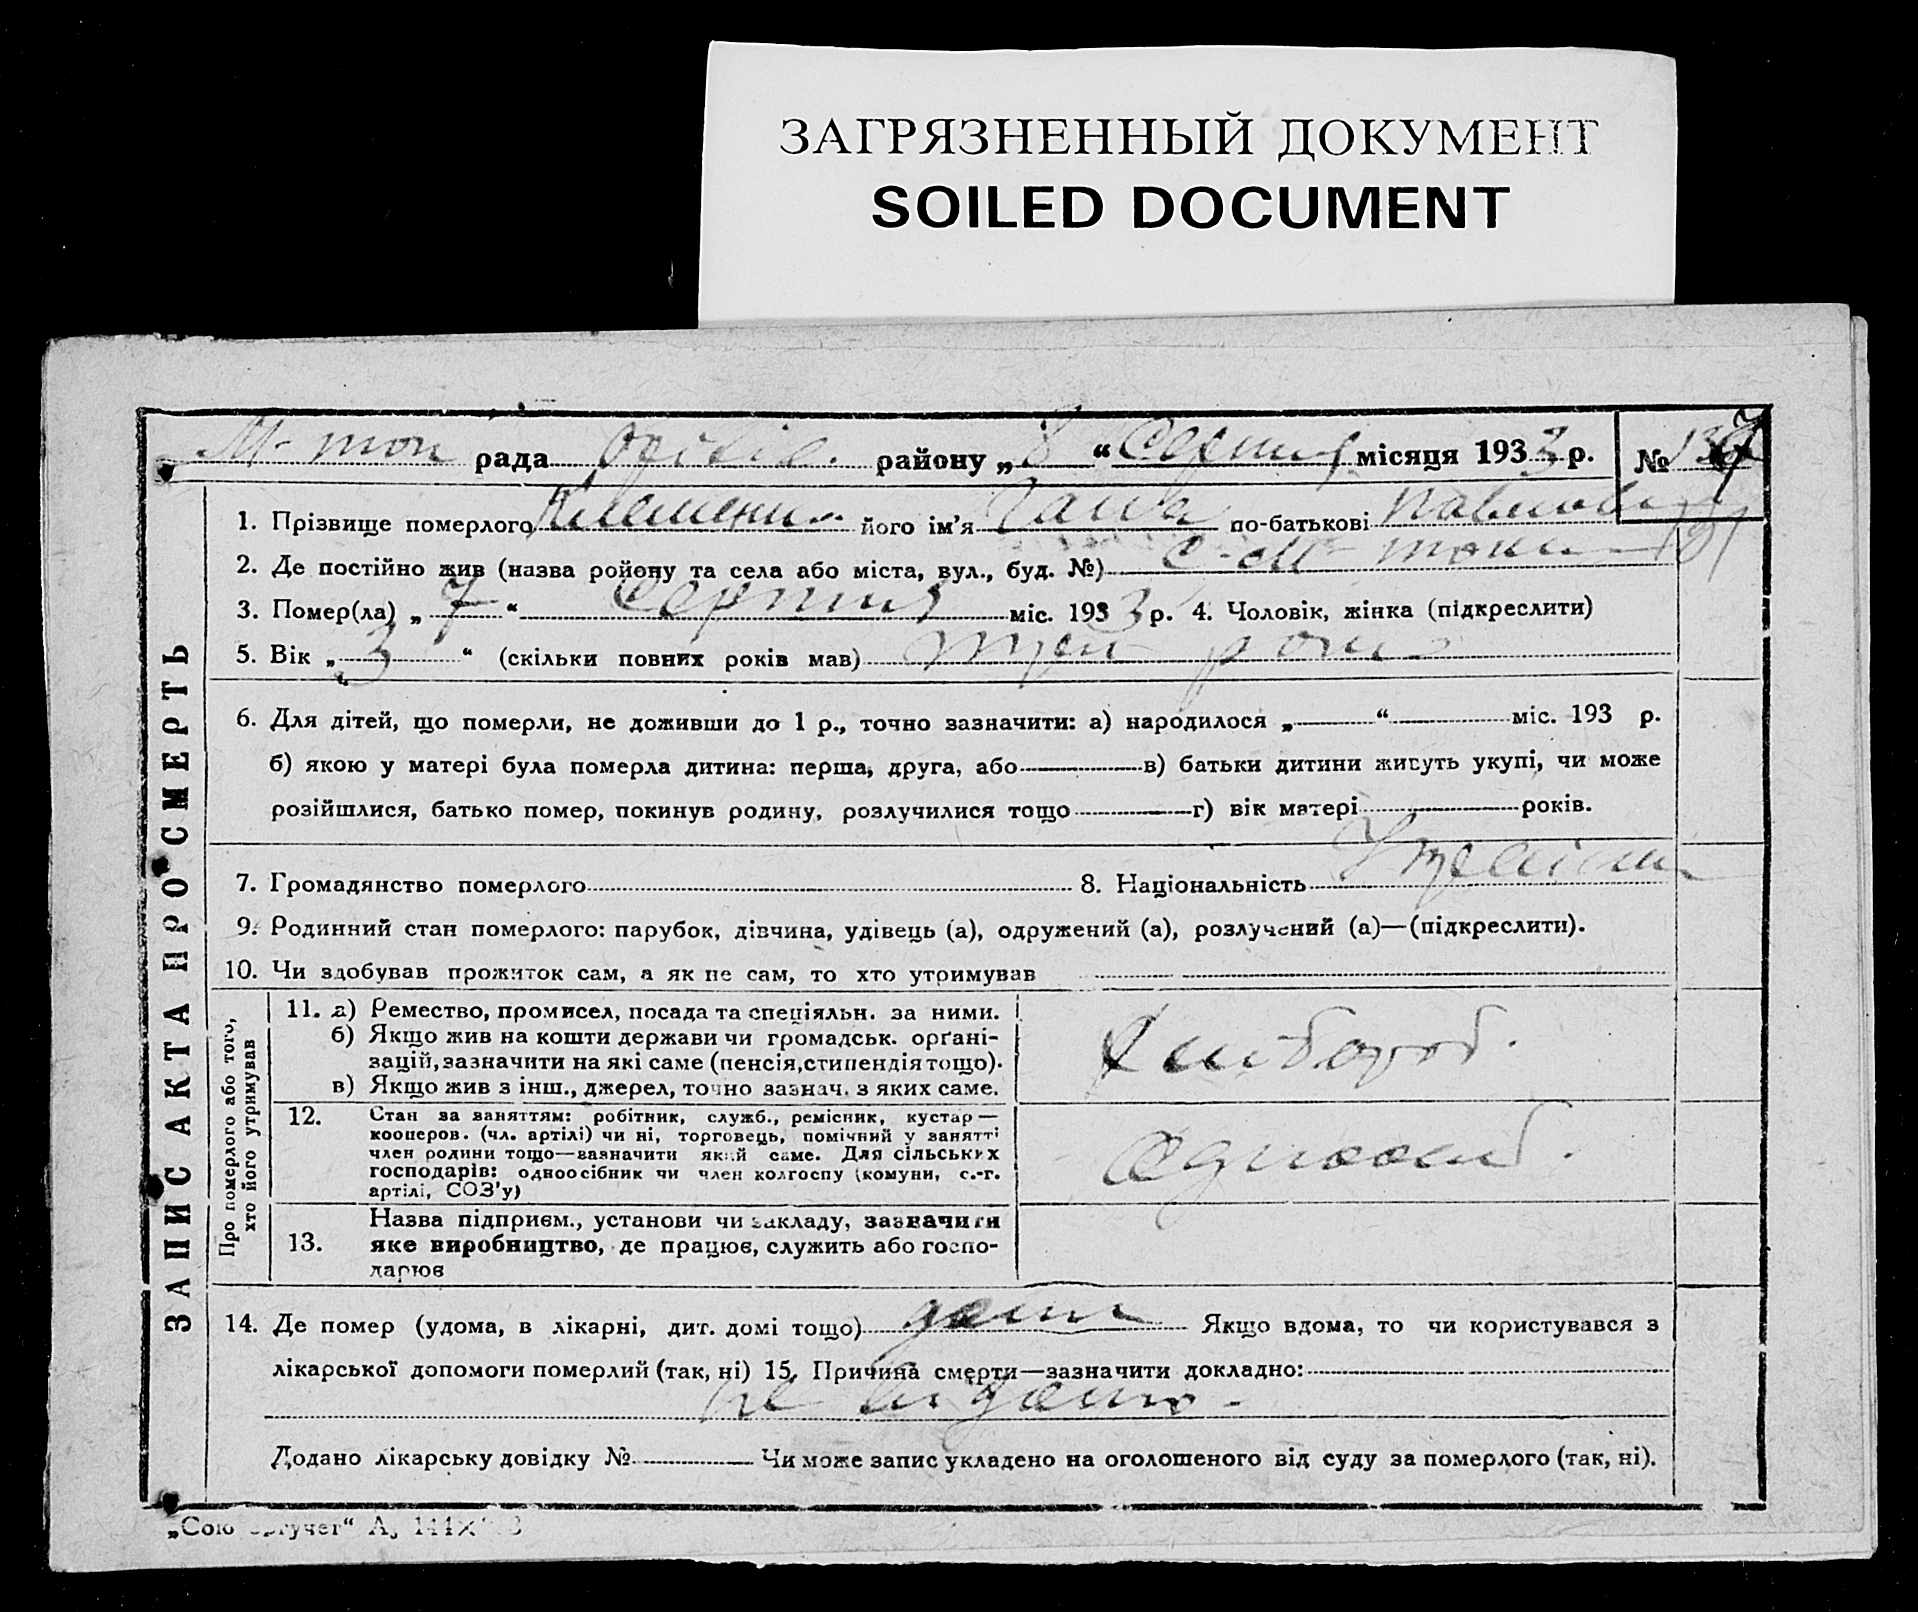 ЗАГРЯЗНЕННЫЙ ДОКУМЕНТ
SOILED DOCUMENT
рада району „8“ Серпня місяця 1933 р. №
1. Прізвище померлого його ім’я по-батькові
2. Де постійно жив (назва ройону та села або міста, вул., буд. №)
3. Помер(ла) „7“ Серпня міс. 1933 р. 4. Чоловік, жінка (підкреслити)
5. Вік „3“ (скільки повних років мав) три роки
6. Для дітей, що померли, не доживши до 1 р., точно зазначити: а) народилося „ “ міс. 193 р.
б) якою у матері була померла дитина: перша, друга, або в) батьки дитини живуть укупі, чи може
розійшлися, батько помер, покинув родину, розлучилися тощо г) вік матері років.
7. Громадянство померлого 8. Національність
9. Родинний стан померлого: парубок, дівчина, удівець (а), одружений (а), розлучений (а)—(підкреслити).
10. Чи здобував прожиток сам, а як не сам, то хто утримував
ЗАПИС АКТА ПРО СМЕРТЬ
Про померлого або того,
хто його утримував
11. а) Ремество, промисел, посада та спеціяльн. за ними.
б) Якщо жив на кошти держави чи громадськ. орґані-
зацій, зазначити на які саме (пенсія, стипендія тощо).
в) Якщо жив з інш., джерел, точно зазнач. з яких саме.
Хлібороб.
12. Стан за заняттям: робітник, служб., ремісник, кустар —
кооперов. (чл. артілі) чи ні, торговець, помічний у занятті
член родини тощо—зазначити який саме. Для сільських
господарів: одноосібник чи член колгоспу (комуни, с.-г.
артілі, СОЗ'у)
Одноосіб.
13. Назва підприєм., установи чи закладу, зазначити
яке виробництво, де працює, служить або госпо-
дарює
14. Де помер (удома, в лікарні, дит. домі тощо) дома Якщо вдома, то чи користувався з
лікарської допомоги померлий (так, ні) 15. Причина смерти—зазначити докладно:
не відомо -
Додано лікарську довідку № Чи може запис укладено на оголошеного від суду за померлого (так, ні).